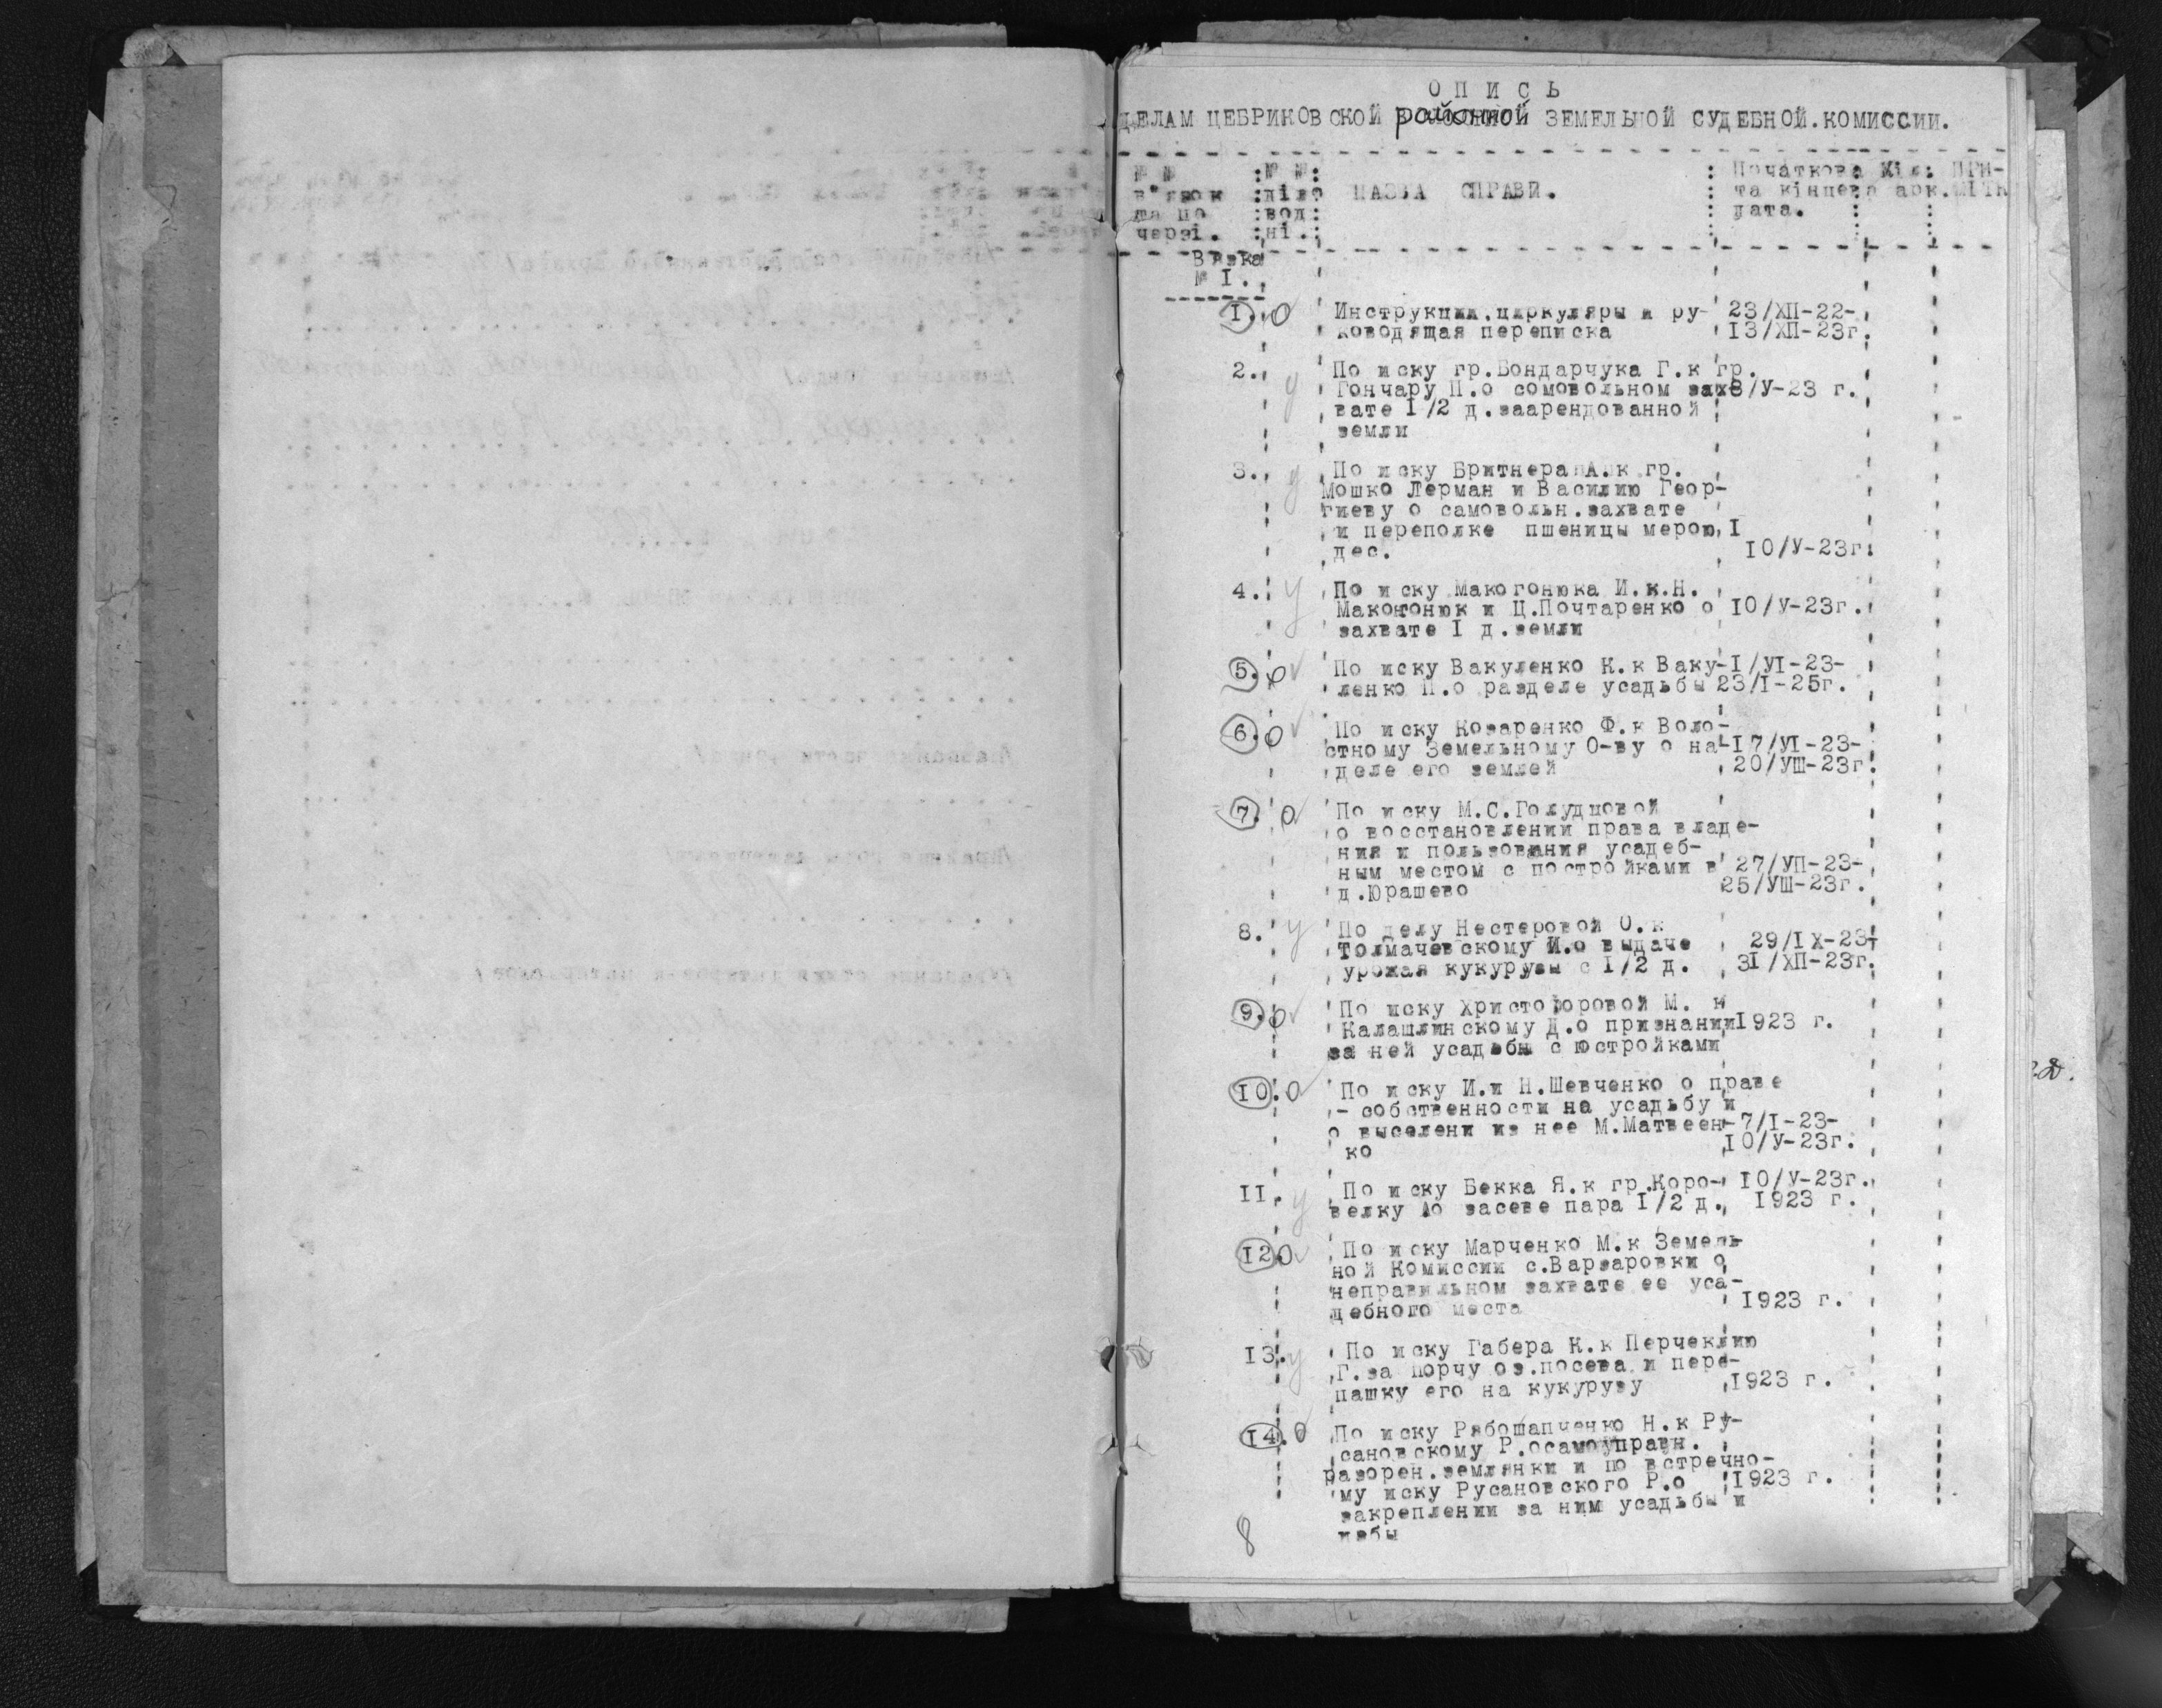 ОПИСЬ
ДЕЛАМ ЦЕБРИКОВСКОЙ районной ЗЕМЕЛЬНОЙ СУДЕБНОЙ.КОМИССИИ.
№ № :№ №: : Початкова: Кіл: ПРИ-
в"язок :діло НАЗВА СПРАВИ. : та кінцева арк.МІТК
та по :вод: : дата. :
черзі. :ні.:
Вязка
№ I.
I. о Инструкции,циркуляры и ру- 23/ХП-22-
ководящая переписка 13/ХП-23г.
2. у По иску гр.Бондарчука Г.к гр.
Гончару П.о сомовольном зах8/У-23 г.
вате I/2 д.заарендованной
земли
3. у По иску Бритнера А.к гр.
Мошко Лерман и Василию Геор-
гиеву о самовольн.захвате
и переполке пшеницы мерою I
дес. 10/У-23г.
4. у По иску Макогонюка И.к.Н.
Макогонюк и Ц.Почтаренко о 10/У-23г.
захвате I д.земли
5. о По иску Вакуленко К.к Ваку-I/УI-23-
ленко П.о разделе усадьбы 23/I-25г.
6. о По иску Козаренко Ф.к Воло-
стному Земельному О-ву о на-I7/УI-23-
деле его землей 20/УШ-23г.
7. о По иску М.С.Голудцовой
о восстановлении права владе-
ния и пользования усадеб-
ным местом с постройками в 27/УП-23-
д.Юрашево 25/УШ-23г.
8. у По делу Нестеровой О.к
Толмачевскому И.о выдаче 29/IХ-23-
урожая кукурузы с I/2 д. 31/ХП-23г.
9. о По иску Христофоровой М. к
Калашлинскому Д.о признании1923 г.
за ней усадьбы с постройками
10. о По иску И.и Н.Шевченко о праве
- собственности на усадьбу и
о выселени из нее М.Матвеен-7/I-23-
ко 10/У-23г.
II. у По иску Бекка Я.к гр.Коро- 10/У-23г.
велку о засеве пара I/2 д. 1923 г.
I2. о По иску Марченко М.к Земель-
ной Комиссии с.Варваровки о
неправильном захвате ее уса-
дебного места 1923 г.
I3. у По иску Габера К.к Перчеклию
Г.за порчу оз.посева и пере-
пашку его на кукурузу 1923 г.
I4. о По иску Рябошапченко Н.к Ру-
сановскому Р.осамоуправн.
разорен.землянки и по встречно-
му иску Русановского Р.о 1923 г.
закреплении за ним усадьбы и
избы
8